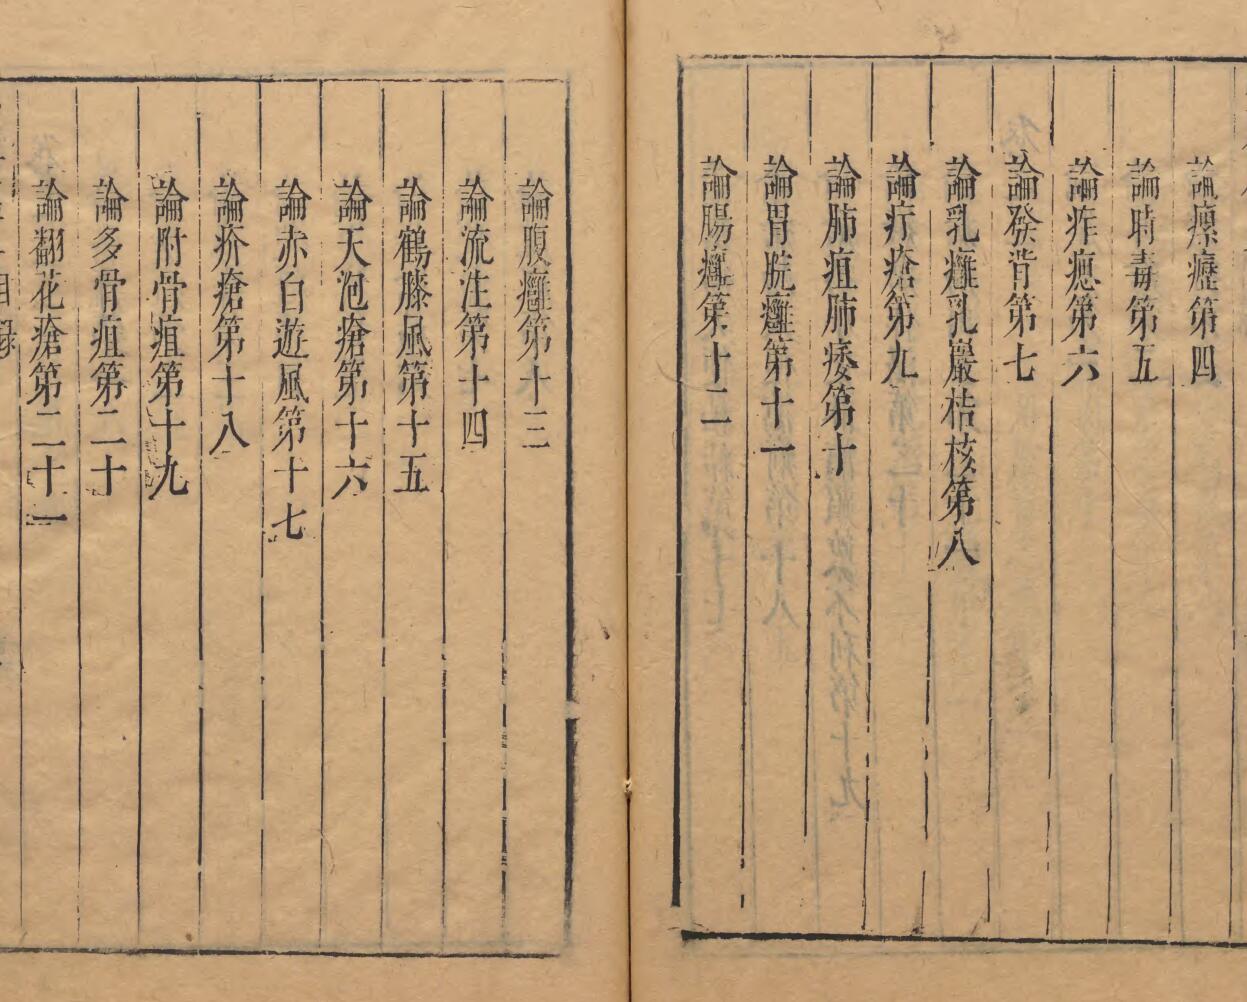 論瘰癧第四
論時毒第五
論痄癋第六
論發背第七
論乳癰乳巖桔核第八
論疔瘡第九
論肺疽肺痿第十
論胃脘癰第十一
論腸癰第十二
論腹癰第十三
論流注第十四
論鶴膝風第十五
論天泡瘡第十六
論赤白遊風第十七
論疥瘡第十八
論附骨疽第十九
論多骨疽第二十
論翻花瘡第二十一
目錄